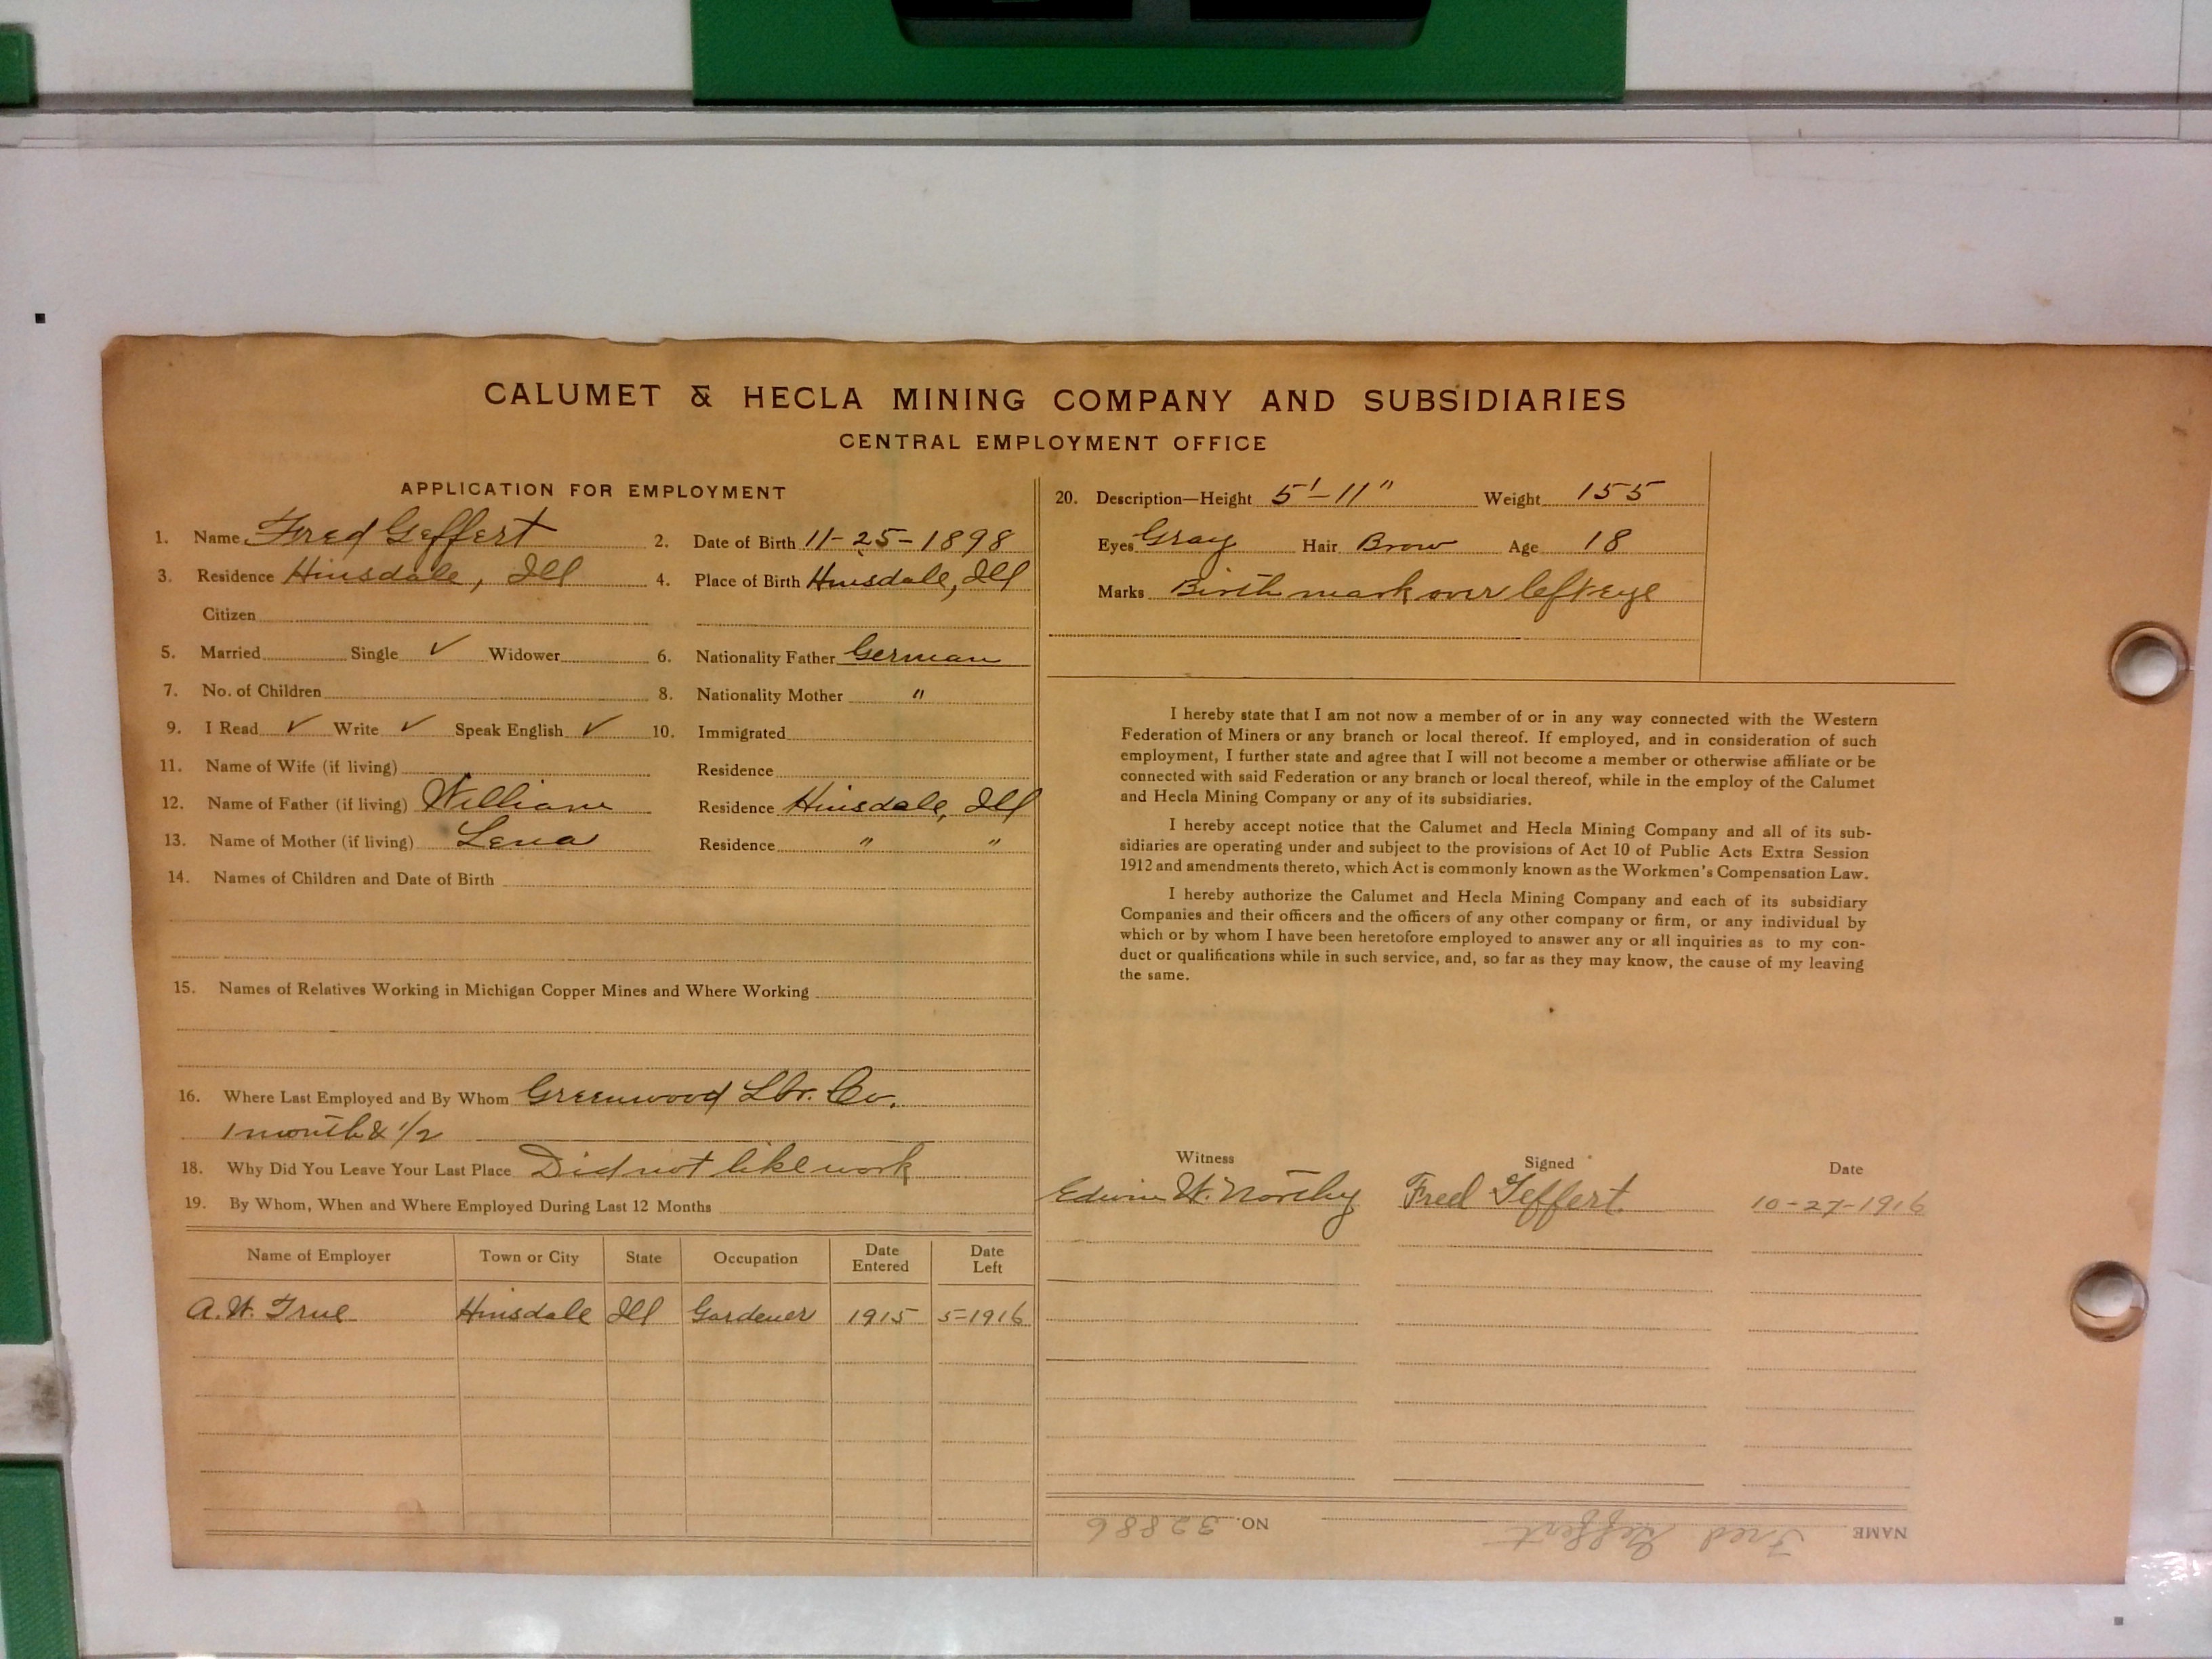 CALUMET & HECLA MINING COMPANY AND SUBSIDIARIES
CENTRAL EMPLOYMENT OFFICE
APPLICATION FOR EMPLOYMENT
1. Name Fred Geffert 2. Date of Birth 11-25-1898
3. Residence Hinsdale, Ill 4. Place of Birth Hinsdale, Ill
Citizen
5. Married Single ✓ Widower 6. Nationality Father German
7. No. of Children 8. Nationality Mother "
9. I Read ✓ Write ✓ Speak English ✓ 10. Immigrated
11. Name of Wife (if living) Residence
12. Name of Father (if living) William Residence Hinsdale, Ill
13. Name of Mother (if living) Lena Residence " "
14. Names of Children and Date of Birth
15. Names of Relatives Working in Michigan Copper Mines and Where Working
16. Where Last Employed and By Whom Greenwood Lbr. Co.
1 month & 1/2
18. Why Did You Leave Your Last Place Did not like work
19. By Whom, When and Where Employed During Last 12 Months
Name of Employer Town or City State Occupation Date Entered Date Left
A. W. True Hinsdale Ill Gardener 1915 5-1916
20. Description—Height 5'-11" Weight 155
Eyes Gray Hair Brow Age 18
Marks Birth mark over left eye
I hereby state that I am not now a member of or in any way connected with the Western
Federation of Miners or any branch or local thereof. If employed, and in consideration of such
employment, I further state and agree that I will not become a member or otherwise affiliate or be
connected with said Federation or any branch or local thereof, while in the employ of the Calumet
and Hecla Mining Company or any of its subsidiaries.
I hereby accept notice that the Calumet and Hecla Mining Company and all of its sub-
sidiaries are operating under and subject to the provisions of Act 10 of Public Acts Extra Session
1912 and amendments thereto, which Act is commonly known as the Workmen's Compensation Law.
I hereby authorize the Calumet and Hecla Mining Company and each of its subsidiary
Companies and their officers and the officers of any other company or firm, or any individual by
which or by whom I have been heretofore employed to answer any or all inquiries as to my con-
duct or qualifications while in such service, and, so far as they may know, the cause of my leaving
the same.
Witness Signed Date
Edwin W. Northey Fred Geffert. 10-27-1916
NAME Fred Geffert NO. 32886